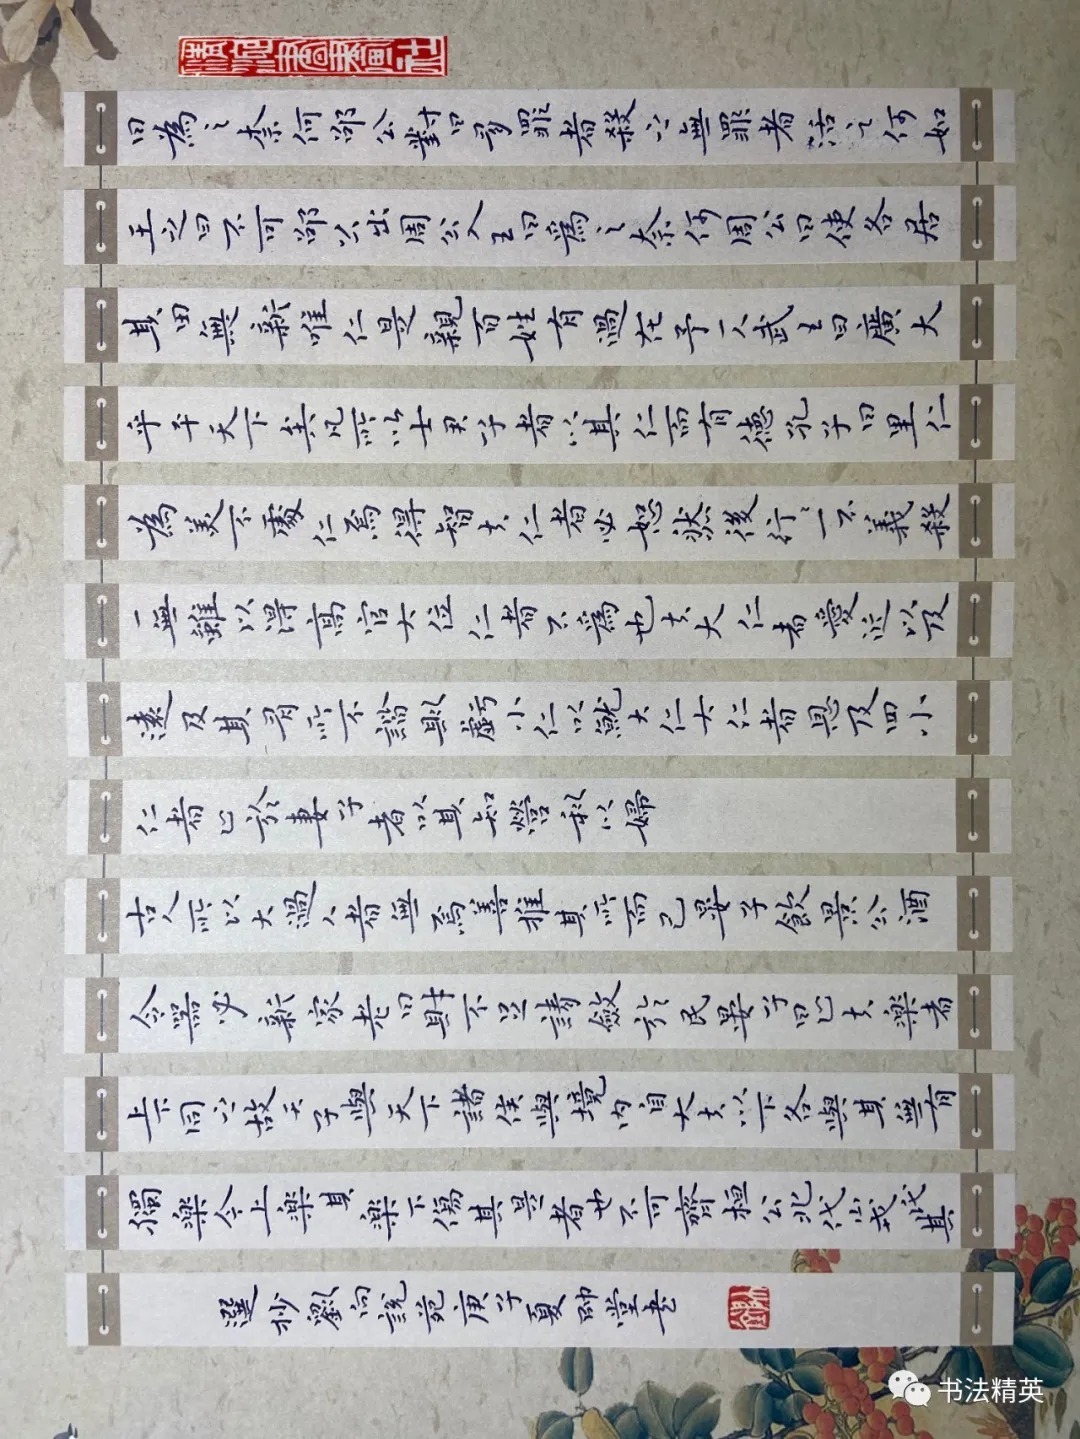 曰為之奈何邵公對曰多罪者殺之無罪者活之何如
王之曰不可邵公出周公入王曰為之奈何周公曰使各居
其田無新唯仁是親百姓有過在予一人武王曰廣大
乎平天下矣凡所以士男子者以其仁而有德孔子曰里仁
為美不處仁焉得智夫仁者必恕然後行行一不義殺
一無雖以得高官大位仁者不為也夫大仁者愛近以及
遠及其有所不諧則虧小仁以就大仁大仁者恩及四小
仁者止於妻子者以其知營利以婦
古人所以大過人者無焉善推其所而已晏子飲景公酒
令器必新家老曰財不足請斂於民晏子曰止夫樂者
上下同之故天子與天下諸侯與境内自大夫以下各與其無有
獨樂今上樂其樂下傷其是者也不可齊桓公北伐山戎氏其
選抄劉向說苑庚子夏 堂書
书法精英